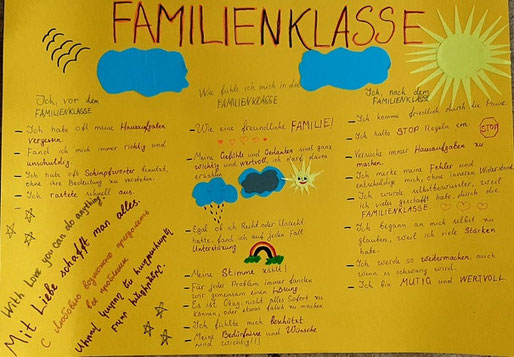 FAMILIENKLASSE
Ich, vor dem
FAMILIENKLASSE
- Ich habe oft meine Hausaufgaben
vergessen.
- Fand ich mich immer richtig und
unschuldig.
- Ich habe oft Schimpfwörter benutzt,
ohne ihre Bedeutung zu verstehen.
- Ich rastete schnell aus.
With Love you can do anything
Mit Liebe schafft man alles.
С любовью возможно преодолеть
все
Wie fühle ich mich in die
FAMILIENKLASSE
- Wie eine freundliche FAMILIE!
- Meine Gefühle und Gedanken sind ganz
wichtig und wertvoll, ich darf davon
erzählen
- Egal ob ich Recht oder Unrecht
hatte, fand ich auf jeden Fall
Unterstützung
- Meine Stimme zählt!
- Für jedes Problem immer fanden
wir gemeinsam einen Lösung
- Es ist Okay, nicht alles Sofort zu
können, oder etwas falsch zu machen
- Ich fühlte mich Beschützt
- Meine Bedürfnisse und Wünsche
sind wichtig!!!
Ich, nach dem
FAMILIENKLASSE
- Ich komme friedlich durch die Pause
- Ich halte STOP Regeln ein
STOP
- Versuche immer Hausaufgaben zu
machen.
- Ich merke meine Fehler und
entschuldige mich, ohne inneren Widerstand
- Ich wurde selbstbewusster, weil
ich viele geschafft habe durch die
FAMILIENKLASSE.
- Ich begann an mich selbst zu
glauben, weil ich viele Stärken
habe.
- Ich werde so weitermachen, auch
wenn es schwierig wird.
- Ich bin MUTIG und WERTVOLL